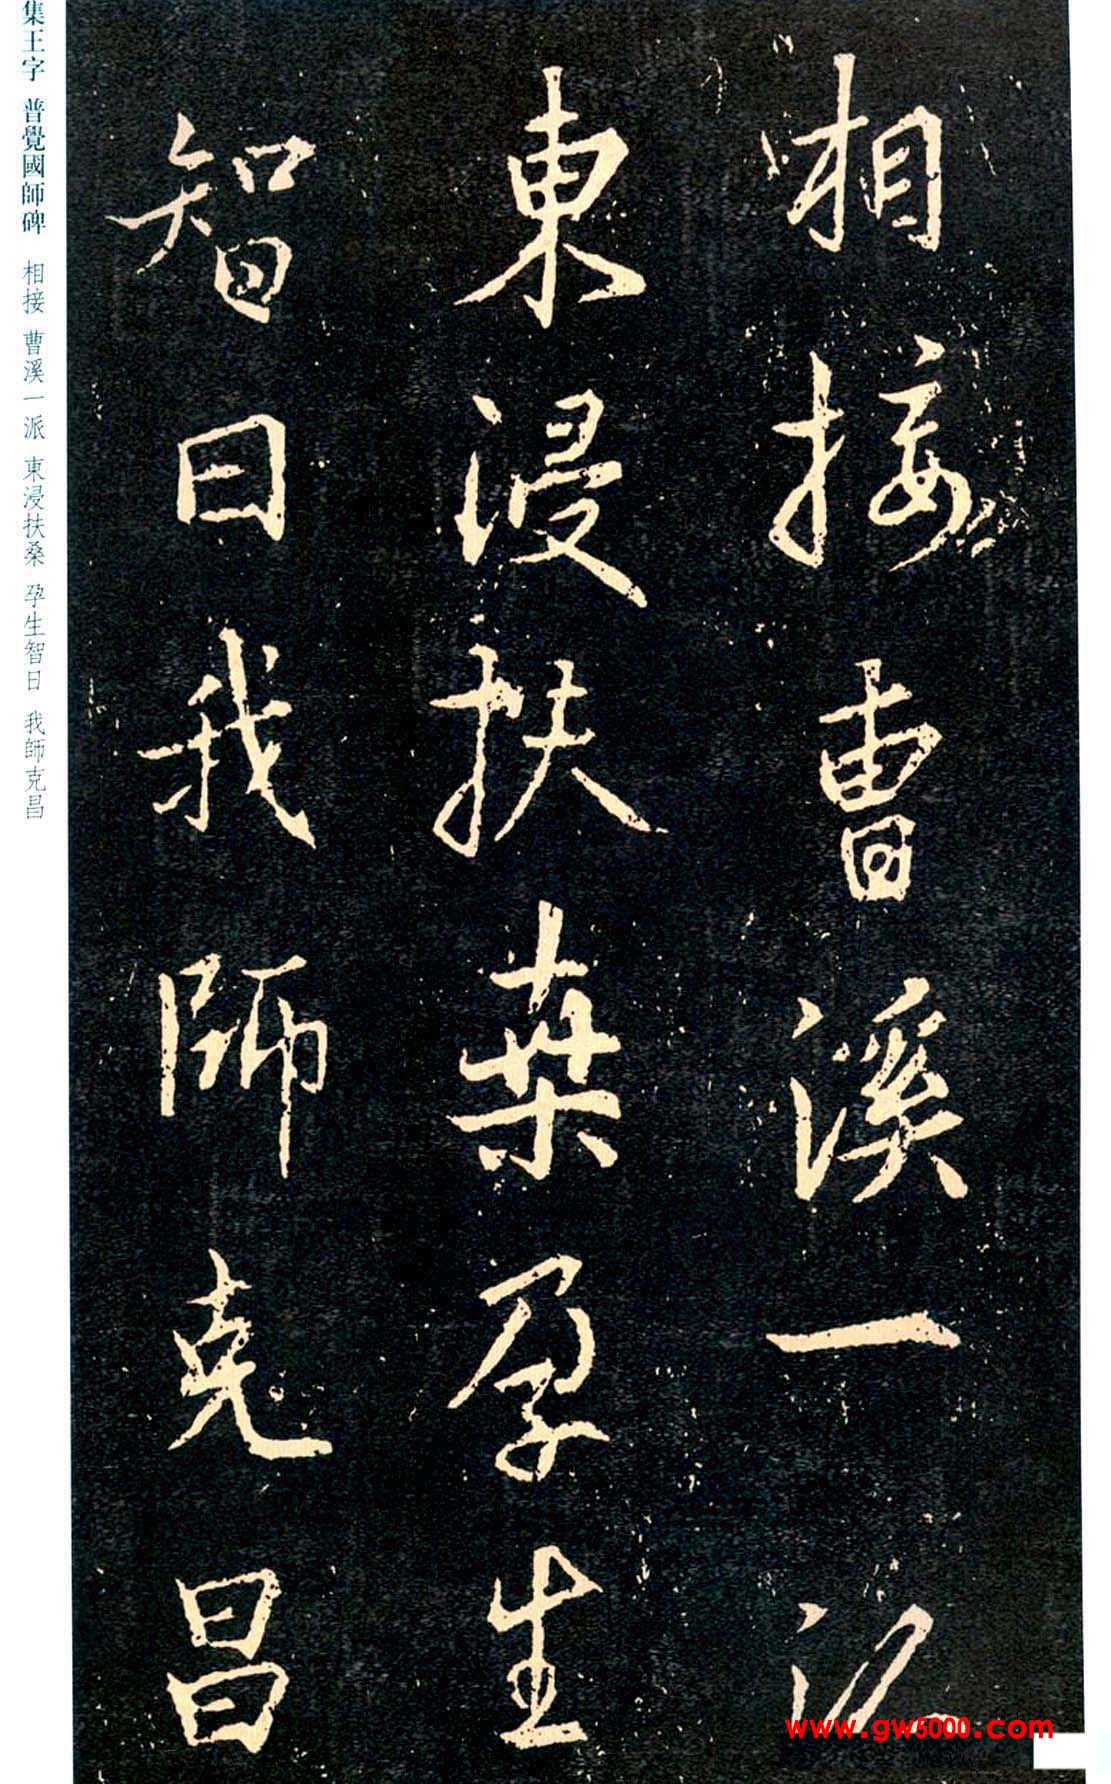 相接曹溪一派
東浸扶桑孕生
智日我師克昌
集王字 普覺國師碑 相接 曹溪一派 東浸扶桑 孕生智日 我師克昌
www.gw5000.com